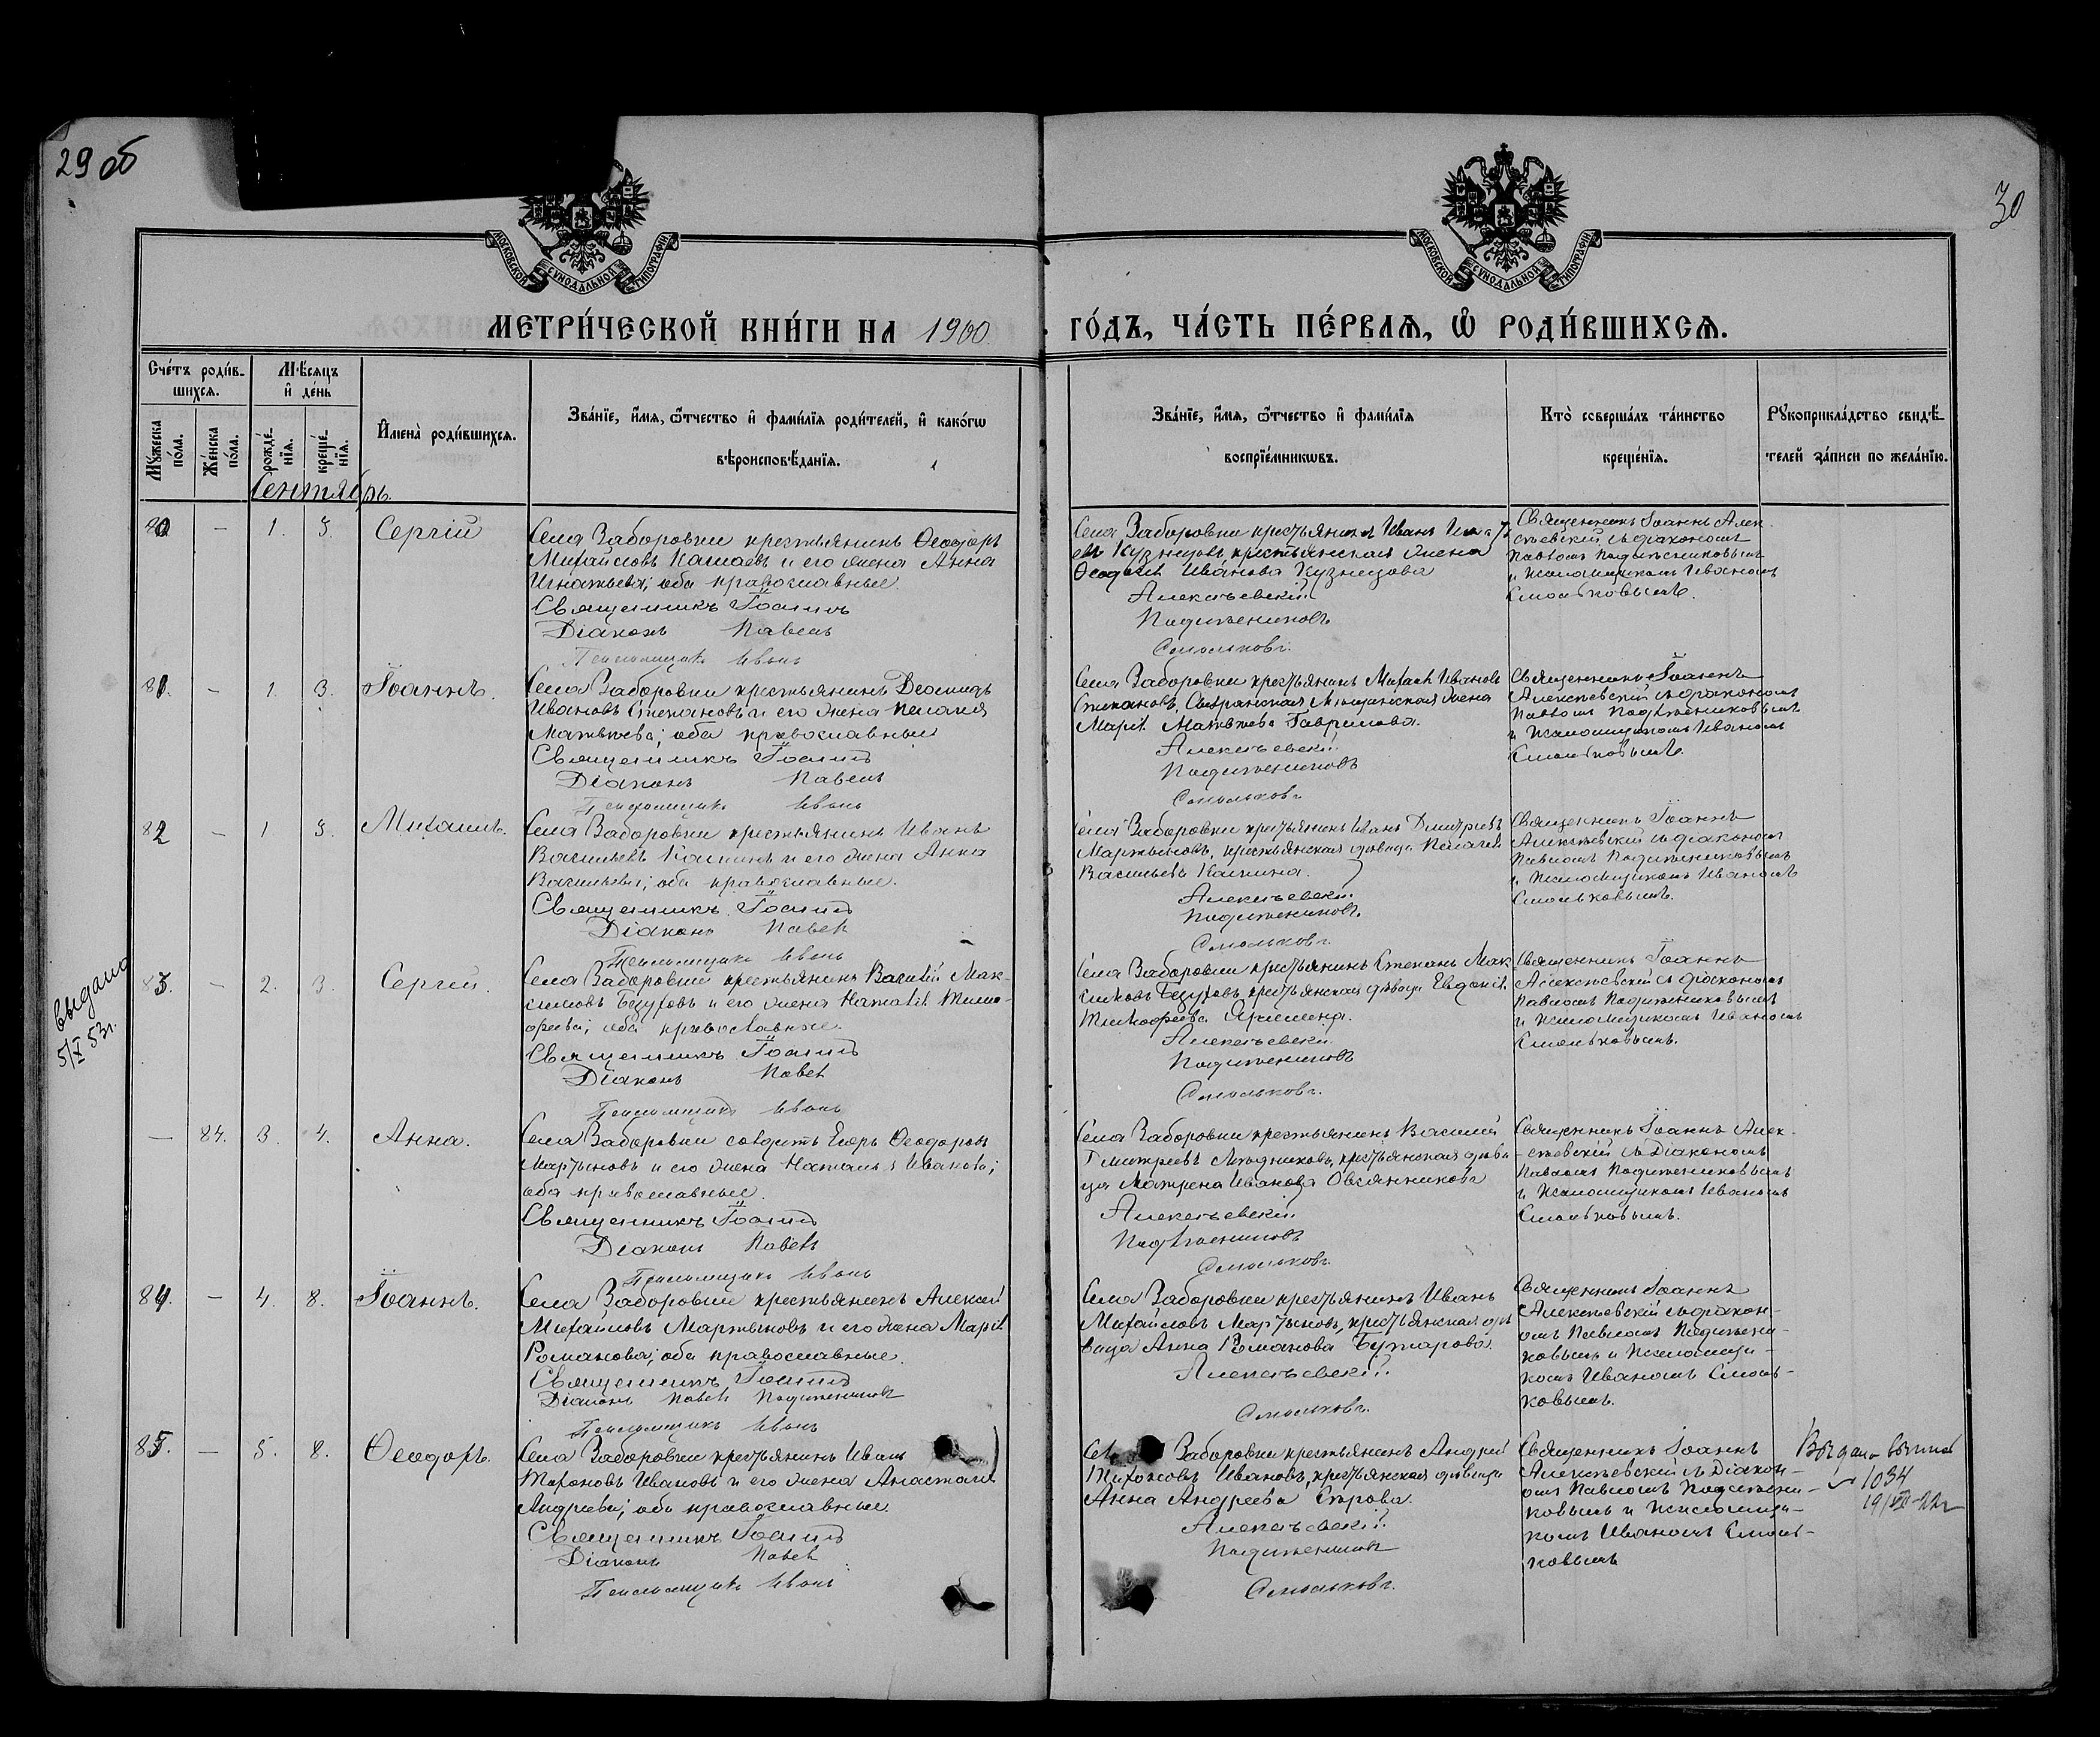 29 об
30
МОСКОВСКОЙ СУНОДАЛЬНОЙ ТИПОГРАФІИ
МОСКОВСКОЙ СУНОДАЛЬНОЙ ТИПОГРАФІИ
МЕТРИ́ЧЕСКОЙ КНИ́ГИ НА 1900
ГО́ДЪ, ЧА́СТЬ ПЕ́РВАѦ, Ѡ РОДИ́ВШИХСѦ.
Сче́тъ роди́в-
шихсѧ.
Мꙋжеска по́ла.
Же́нска по́ла.
Мѣ́сѧцъ
и҆ де́нь
рожде́-
нїѧ.
креще́-
нїѧ.
И҆мена̀ роди́вшихсѧ.
Зва́нїе, и҆́мѧ, ѻ҆́тчество и҆ фами́лїѧ роди́телей, и҆ како́гѡ
вѣроисповѣ́данїѧ.
Зва́нїе, и҆́мѧ, ѻ҆́тчество и҆ фами́лїѧ
воспрїе́мникѡвъ.
Кто̀ соверша́лъ та́инство
креще́нїѧ.
Рꙋкоприкла́дство свидѣ́-
телей за́писи по жела́нїю.
Сентябрь.
80 — 1. 3. Сергій
Села Заборовки крестьянинъ Ѳеодоръ
Михайловъ и его жена Анна
Игнатьева; оба православные.
Священникъ Іоаннъ
Діаконъ Павелъ
Псаломщикъ Иванъ
Села Заборовки крестьянинъ Иванъ
Кузнецовъ, крестьянская жена
Ѳеодосія Иванова Кузнецова
Алексѣевскій
Подтяжениковъ
Смольковъ.
Священникъ Іоаннъ Алек-
сѣевскій съ діакономъ
Павломъ
и псаломщикомъ Иваномъ
Смольковымъ.
81. — 1. 3. Іоаннъ.
Села Заборовки крестьянинъ Діомидъ
Ивановъ Степановъ и его жена Пелагія
Матвѣева; оба православные
Священникъ Іоаннъ
Діаконъ Павелъ
Псаломщикъ Иванъ
Села Заборовки крестьянинъ Михаилъ Ивановъ
Степановъ, Сызранская мѣщанская жена
Марія Матвѣева Гаврилова.
Алексѣевскій
Смольковъ
Священникъ Іоаннъ
Алексѣевскій съ діакономъ
Павломъ
и псаломщикомъ Иваномъ
Смольковымъ.
82 — 1 3. Михаилъ.
Села Заборовки крестьянинъ Иванъ
Васильевъ и его жена Анна
Васильева; оба православные.
Священникъ Іоаннъ
Діаконъ Павелъ
Псаломщикъ Иванъ
Села Заборовки крестьянинъ Иванъ Дмитріевъ
Мартыновъ, крестьянская дѣвица Пелагія
Васильева
Алексѣевскій
Смольковъ.
Священникъ Іоаннъ
Алексѣевскій съ діакономъ
Павломъ
и псаломщикомъ Иваномъ
Смольковымъ.
выдано
5/X 53г.
83. — 2. 3. Сергій.
Села Заборовки крестьянинъ Василій Мак-
симовъ Безуховъ и его жена Наталія Тимо-
феева; оба православные.
Священникъ Іоаннъ
Діаконъ Павелъ
Псаломщикъ Иванъ
Села Заборовки крестьянинъ Степанъ Мак-
симовъ Безуховъ, крестьянская дѣвица Евдокія
Тимофеева
Алексѣевскій
Смольковъ.
Священникъ Іоаннъ
Алексѣевскій съ діакономъ
Павломъ
и псаломщикомъ Иваномъ
Смольковымъ.
— 84. 3. 4. Анна.
Села Заборовки солдатъ Егоръ Ѳеодоровъ
Мартыновъ и его жена Наталья Иванова;
оба православные.
Священникъ Іоаннъ
Діаконъ Павелъ
Псаломщикъ Иванъ
Села Заборовки крестьянинъ Василій
Дмитріевъ Мѣдниковъ, крестьянская дѣви-
ца Матрена Иванова Овсянникова
Алексѣевскій
Смольковъ.
Священникъ Іоаннъ Алек-
сѣевскій съ Діакономъ
Павломъ
и псаломщикомъ Иваномъ
Смольковымъ.
84. — 4. 8. Іоаннъ.
Села Заборовки крестьянинъ Алексѣй
Михайловъ Мартыновъ и его жена Марія
Романова; оба православные.
Священникъ Іоаннъ
Діаконъ Павелъ
Псаломщикъ Иванъ
Села Заборовки крестьянинъ Иванъ
Михайловъ Мартыновъ, крестьянская дѣ-
вица Анна Романова
Алексѣевскій
Смольковъ.
Священникъ Іоаннъ
Алексѣевскій съ діакон-
омъ Павломъ
ковымъ и псаломщи-
комъ Иваномъ Смоль-
ковымъ.
85. — 5. 8. Ѳеодоръ.
Села Заборовки крестьянинъ Иванъ
Тихоновъ Ивановъ и его жена Анастасія
Андреева; оба православные.
Священникъ Іоаннъ
Діаконъ Павелъ
Псаломщикъ Иванъ
Заборовки крестьянинъ Андрей
Тихоновъ Ивановъ, крестьянская дѣвица
Анна Андреева
Алексѣевскій
Смольковъ.
Священникъ Іоаннъ
Алексѣевскій съ Діакон-
омъ Павломъ
ковымъ и псаломщи-
комъ Иваномъ Смоль-
ковымъ
Выдана
1034